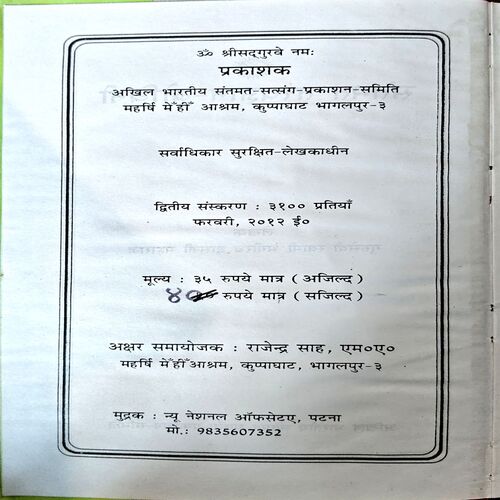 ॐ श्रीसद्गुरवे नमः
प्रकाशक
अखिल भारतीय संतमत-सत्संग-प्रकाशन-समिति
महर्षि मेँहीँ आश्रम, कुप्पाघाट भागलपुर-३
सर्वाधिकार सुरक्षित-लेखकाधीन
द्वितीय संस्करण : ३१०० प्रतियाँ
फरवरी, २०१२ ई०
मूल्य : ३५ रुपये मात्र ( अजिल्द )
४० रुपये मात्र ( सजिल्द )
अक्षर समायोजक : राजेन्द्र साह, एम०ए०
महर्षि मेँहीँ आश्रम, कुप्पाघाट, भागलपुर-३
मुद्रक : न्यू नेशनल ऑफसेटए, पटना
मो.: 9835607352